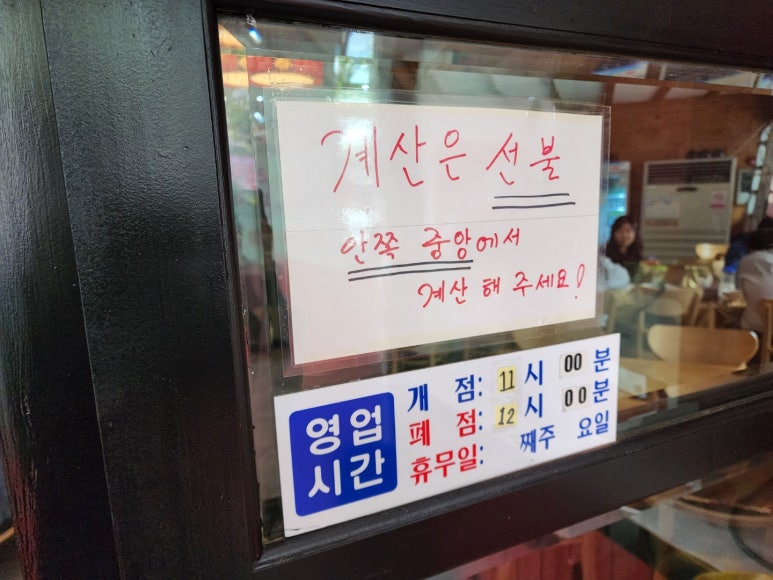 계산은 선불
안쪽 중앙에서
계산 해 주세요!
영업
시간
개 점: 11시 00분
폐 점: 12시 00분
휴무일: 째주 요일